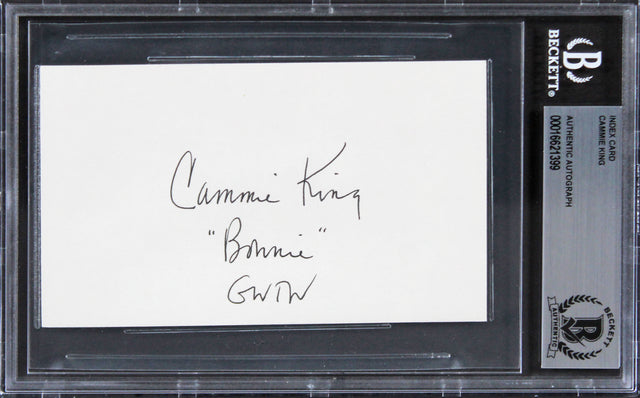 Cammie King
"Bonnie"
GWTW
B
BECKETT®
INDEX CARD
CAMMIE KING
AUTHENTIC AUTOGRAPH
00016621399
BECKETT
AUTHENTIC